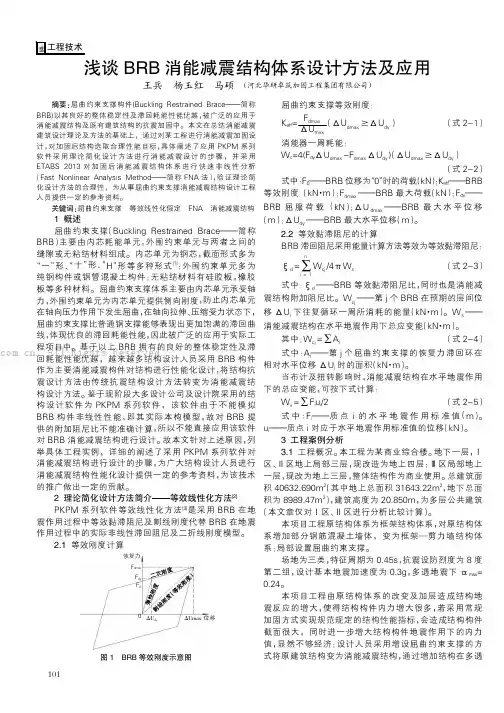 工程技术
浅谈 BRB 消能减震结构体系设计方法及应用
王兵 杨玉红 马硕 (河北华研卓筑加固工程集团有限公司)
摘要:屈曲约束支撑构件(Buckling Restrained Brace——简称
BRB)以其良好的整体稳定性及滞回耗能性能优越,被广泛的应用于
消能减震结构及既有建筑结构的抗震加固中。本文在总结消能减震
建筑设计理论及方法的基础上,通过对某工程进行消能减震加固设
计,对加固后结构选取合理性能目标,具体阐述了应用 PKPM 系列
软件采用理论简化设计方法进行消能减震设计的步骤,并采用
ETABS 2013 对加固后消能减震结构体系进行快速非线性分析
(Fast Nonlinear Analysis Method——简称 FNA 法),验证理论简
化设计方法的合理性,为从事屈曲约束支撑消能减震结构设计工程
人员提供一定的参考资料。
关键词:屈曲约束支撑 等效线性化假定 FNA 消能减震结构
1 概述
屈曲约束支撑(Buckling Restrained Brace——简称
BRB)主要由内芯耗能单元,外围约束单元与两者之间的
缝隙或无粘结材料组成。内芯单元为钢芯,截面形式多为
“一”形、“十”形、“H”形等多种形式[1];外围约束单元多为
纯钢构件或钢管混凝土构件;无粘结材料有硅胶板、橡胶
板等多种材料。屈曲约束支撑体系主要由内芯单元承受轴
力,外围约束单元为内芯单元提供侧向刚度,防止内芯单元
在轴向压力作用下发生屈曲,在轴向拉伸、压缩受力状态下,
屈曲约束支撑比普通钢支撑能够表现出更加饱满的滞回曲
线,体现优良的滞回耗能性能,因此被广泛的应用于实际工
程项目中。基于以上 BRB 拥有的良好的整体稳定性及滞
回耗能性能优越,越来越多结构设计人员采用 BRB 构件
作为主要消能减震构件对结构进行性能化设计,将结构抗
震设计方法由传统抗震结构设计方法转变为消能减震结
构设计方法。鉴于现阶段大多设计公司及设计院采用的结
构设计软件为 PKPM 系列软件,该软件由于不能模拟
BRB 构件非线性性能,即其实际本构模型,故对 BRB 提
供的附加阻尼比不能准确计算,所以不能直接应用该软件
对 BRB 消能减震结构进行设计。故本文针对上述原因,列
举具体工程实例,详细的阐述了采用 PKPM 系列软件对
消能减震结构进行设计的步骤,为广大结构设计人员进行
消能减震结构性能化设计提供一定的参考资料,为该技术
的推广做出一定的贡献。
2 理论简化设计方法简介——等效线性化方法[2]
PKPM 系列软件等效线性化方法[2]是采用 BRB 在地
震作用过程中等效黏滞阻尼及割线刚度代替 BRB 在地震
作用过程中的实际非线性滞回阻尼及二折线刚度模型。
2.1 等效刚度计算
恢复力
二次刚度
弹性刚度
割线刚度(等效刚度)
0
ΔUmax 位移
图 1 BRB 等效刚度示意图
屈曲约束支撑等效刚度:
Keff=Fdmax/ΔUmax(ΔUdmax≥ΔUdy) (式 2-1)
消能器一周耗能:
Wc=4(FdyΔUdmax-FdmaxΔUdy)(ΔUdmax≥ΔUdy)
(式 2-2)
式中:F0——BRB位移为“0”时的荷载(kN);Keff——BRB
等效刚度 (kN•m);Fdmax——BRB 最大荷载(kN);Fdy——
BRB 屈服荷载 (kN);ΔUdmax——BRB 最大水平位移
(m);ΔUdy——BRB 最大水平位移(m)。
2.2 等效黏滞阻尼的计算
BRB 滞回阻尼采用能量计算方法等效为等效黏滞阻尼:
ξd=∑Wcj/4πWs (式 2-3)
式中:ξd——BRB 等效黏滞阻尼比,同时也是消能减
震结构附加阻尼比。Wcj——第 j 个 BRB 在预期的层间位
移 ΔUj 下往复循环一周所消耗的能量(kN•m)。Ws——
消能减震结构在水平地震作用下总应变能(kN•m)。
其中:Wcj=∑Aj (式 2-4)
式中:Aj——第 j 个屈曲约束支撑的恢复力滞回环在
相对水平位移 ΔUj 时的面积(kN•m)。
当布计及扭转影响时,消能减震结构在水平地震作用
下的总应变能,可按下式计算:
Ws=∑Fiui/2 (式 2-5)
式中:Fi——质点 i 的水平地震作用标准值(m)。
ui——质点 i 对应于水平地震作用标准值的位移(kN)。
3 工程案例分析
3.1 工程概况。本工程为某商业综合楼。地下一层,Ⅰ
区、Ⅱ区地上局部三层,现改造为地上四层;Ⅲ区局部地上
一层,现改为地上三层,整体结构作为商业使用。总建筑面
积 40632.690m²(其中地上总面积 31643.22m²,地下总面
积为 8989.47m²),建筑高度为 20.850m,为多层公共建筑
(本文章仅对Ⅰ区、Ⅱ区进行分析比较计算)。
本项目工程原结构体系为框架结构体系,对原结构体
系增加部分钢筋混凝土墙体,变为框架—剪力墙结构体
系;局部设置屈曲约束支撑。
场地为三类,特征周期为 0.45s,抗震设防烈度为 8 度
第二组,设计基本地震加速度为 0.3g,多遇地震下 αmax=
0.24。
本项目工程由原结构体系的改变及加层造成结构地
震反应的增大,使得结构构件内力增大很多,若采用常规
加固方式实现规范规定的结构性能指标,会造成结构构件
截面很大,同时进一步增大结构构件地震作用下的内力
值,显然不够经济;设计人员采用增设屈曲约束支撑的方
式将原建筑结构变为消能减震结构,通过增加结构在多遇
101